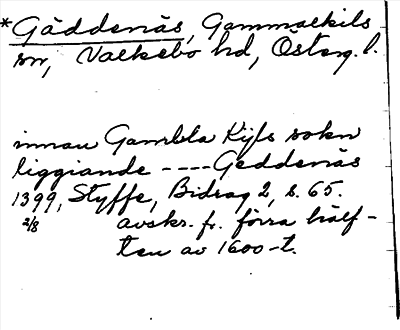 *Gäddenäs, Gammalkils
sn, Valkebo hd, Österg. l.
innan Gambla Kijls sokn
liggiande ---- Geddenäs
1399, Styffe, Bidrag 2, s. 65.
2/8 avskr. fr. förra hälf-
ten av 1600-t.